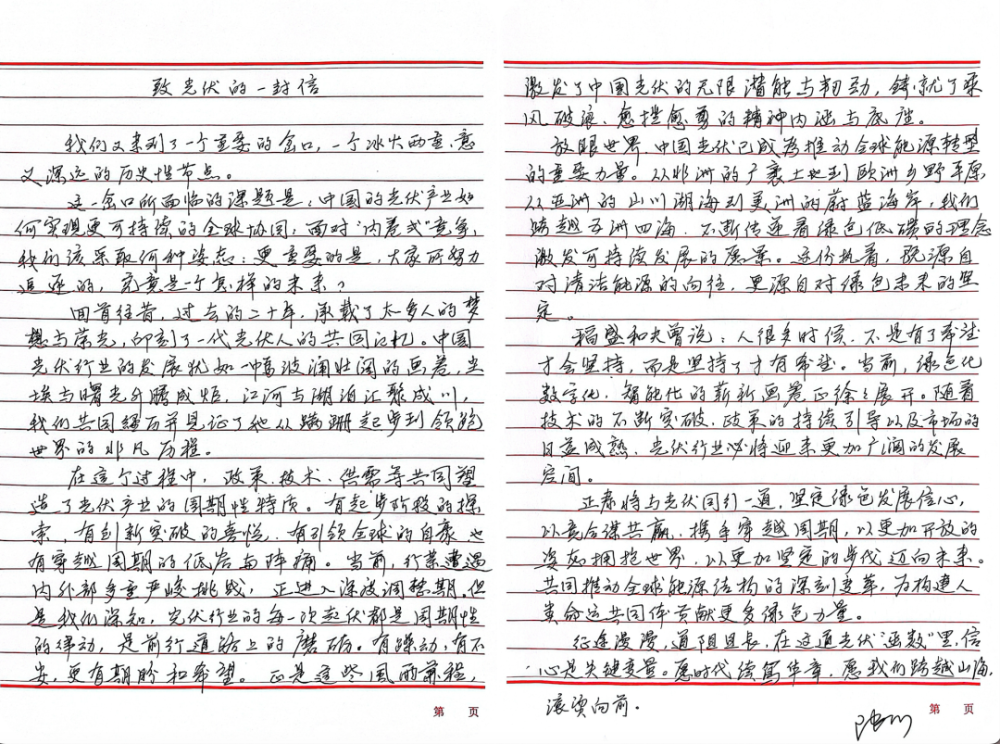 致光伏的一封信
我们又来到了一个重要的岔口，一个冰火两重、意
义深远的历史性节点。
这一岔口所面临的课题是：中国的光伏产业如
何实现更可持续的全球协同，面对“内卷式”竞争，
我们该采取何种姿态；更重要的是，大家所努力
追逐的，究竟是一个怎样的未来？
回首往昔，过去的二十年，承载了太多人的梦
想与荣光，印刻了一代光伏人的共同记忆。中国
光伏行业的发展犹如一幅波澜壮阔的画卷，尘
埃与曙光升腾成炬，江河与湖泊汇聚成川，
我们共同经历并见证了他从蹒跚起步到领跑
世界的非凡历程。
在这个过程中，政策、技术、供需等共同塑
造了光伏产业的周期性特质。有起步阶段的探
索，有创新突破的喜悦，有引领全球的自豪，也
有穿越周期的低谷与阵痛。当前，行业遭遇
内外部多重严峻挑战，正进入深度调整期。但
是我们深知，光伏行业的每一次起伏都是周期性
的律动，是前行道路上的磨砺。有躁动、有不
安，更有期盼和希望。正是这些风雨兼程，
激发了中国光伏的无限潜能与韧劲，铸就了乘
风破浪、愈挫愈勇的精神内涵与底座。
放眼世界，中国光伏已成为推动全球能源转型
的重要力量。从非洲的广袤土地到欧洲乡野平原
从亚洲的山川湖海到美洲的蔚蓝海岸，我们
跨越五洲四海，不断传递着绿色低碳的理念
激发可持续发展的愿景。这份执着，既源自
对清洁能源的向往，更源自对绿色未来的坚
定。
稻盛和夫曾说：人很多时候，不是有了希望
才会坚持，而是坚持了才有希望。当前，绿色化
数字化、智能化的崭新画卷正徐徐展开。随着
技术的不断突破、政策的持续引导以及市场的
日益成熟，光伏行业必将迎来更加广阔的发展
空间。
正泰将与光伏同行一道，坚定绿色发展信心，
以竞合谋共赢，携手穿越周期，以更加开放的
姿态拥抱世界，以更加坚定的步伐迈向未来。
共同推动全球能源结构的深刻变革，为构建人
类命运共同体贡献更多绿色力量。
征途漫漫，道阻且长，在这道光伏“函数”里，信
心是关键变量。愿时代续写华章，愿我们跨越山海，
滚烫向前。
陆川
第 页
第 页